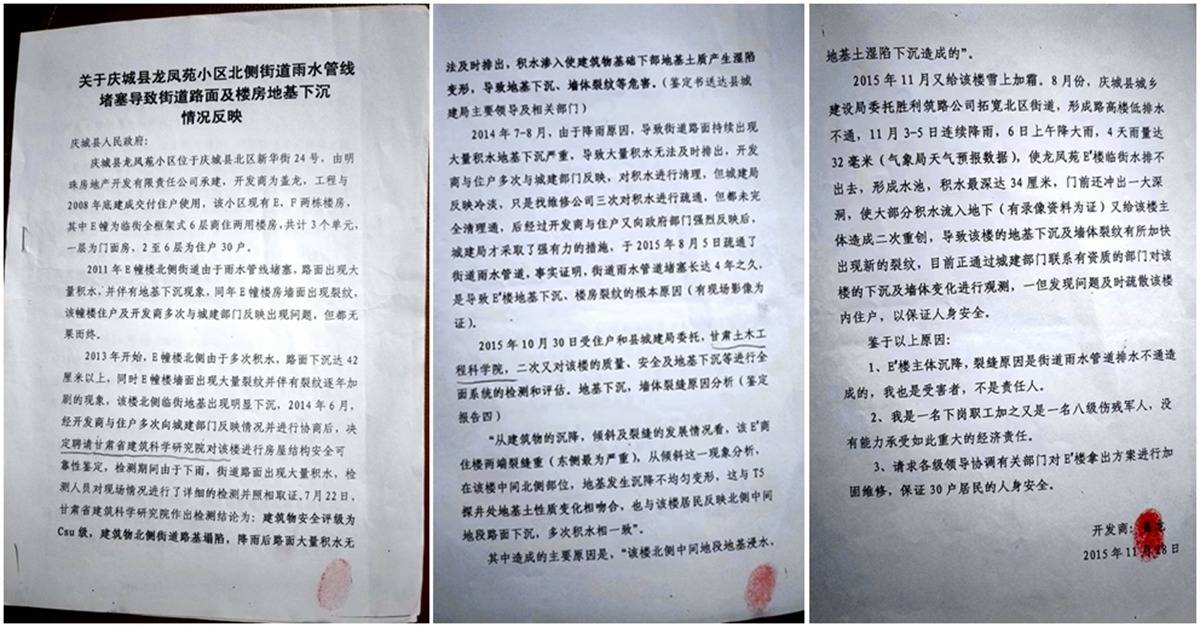 关于庆城县龙凤苑小区北侧街道雨水管线
堵塞导致街道路面及楼房地基下沉
情况反映
庆城县人民政府:
庆城县龙凤苑小区位于庆城县北区新华街24号,由明
珠房地产开发有限责任公司承建,开发商为盖龙,工程与
2008年底建成交付住户使用,该小区现有E、F两栋楼房,
其中E幢为临街全框架式6层商住两用楼房,共计3个单元,
一层为门面房,2至6层为住户30户。
2011年E幢楼北侧街道由于雨水管线堵塞,路面出现大
量积水,并伴有地基下沉现象,同年E幢楼房墙面出现裂纹,
该幢楼住户及开发商多次与城建部门反映出现问题,但都无
果而终。
2013年开始,E幢楼北侧由于多次积水,路面下沉达42
厘米以上,同时E幢楼墙面出现大量裂纹并伴有裂纹逐年加
剧的现象,该楼北侧临街地基出现明显下沉,2014年6月,
经开发商与住户多次向城建部门反映情况并进行协商后,决
定聘请甘肃省建筑科学研究院对该楼进行房屋结构安全可
靠性鉴定,检测期间由于下雨,街道路面出现大量积水,检
测人员对现场情况进行了详细的检测并照相取证。7月22日,
甘肃省建筑科学研究院作出检测结论为:建筑物安全评级为
Csu级,建筑物北侧街道路基塌陷,降雨后路面大量积水无
法及时排出,积水渗入使建筑物基础下部地基土质产生湿陷
变形,导致地基下沉、墙体裂纹等危害。(鉴定书送达县城
建局主要领导及相关部门)
2014年7-8月,由于降雨原因,导致街道路面持续出现
大量积水地基下沉严重,导致大量积水无法及时排出,开发
商与住户多次与城建部门反映,对积水进行清理,但城建局
反映冷淡,只是找维修公司三次对积水进行疏通,但都未完
全清理通,后经过开发商与住户又向政府部门强烈反映后,
城建局才采取了强有力的措施,于2015年8月5日疏通了
街道雨水管道,事实证明,街道雨水管道堵塞长达4年之久,
是导致E#楼地基下沉、楼房裂纹的根本原因(有现场影像为
证)。
2015年10月30日受住户和县城建局委托,甘肃土木工
程科学院,二次又对该楼的质量、安全及地基下沉等进行全
面系统的检测和评估。地基下沉,墙体裂缝原因分析(鉴定
报告四)
“从建筑物的沉降,倾斜及裂缝的发展情况看,该E#商
住楼两端裂缝重(东侧最为严重),从倾斜这一现象分析,
在该楼中间北侧部位,地基发生沉降不均匀变形,这与T5
探井处地基土性质变化相吻合,也与该楼居民反映北侧中间
地段路面下沉,多次积水相一致”。
其中造成的主要原因是,“该楼北侧中间地段地基浸水,
地基土湿陷下沉造成的”。
2015年11月又给该楼雪上加霜。8月份,庆城县城乡
建设局委托胜利筑路公司拓宽北区街道,形成路高楼低排水
不通,11月3-5日连续降雨,6日上午降大雨,4天雨量达
32毫米(气象局天气预报数据),使龙凤苑E#楼临街水排不
出去,形成水池,积水最深达34厘米,门前还冲出一大深
洞,使大部分积水流入地下(有录像资料为证)又给该楼主
体造成二次重创,导致该楼的地基下沉及墙体裂纹有所加快
出现新的裂纹,目前正通过城建部门联系有资质的部门对该
楼的下沉及墙体变化进行观测,一但发现问题及时疏散该楼
内住户,以保证人身安全。
鉴于以上原因:
1、E#楼主体沉降,裂缝原因是街道雨水管道排水不通造
成的,我也是受害者,不是责任人。
2、我是一名下岗职工加之又是一名八级伤残军人,没
有能力承受如此重大的经济责任。
3、请求各级领导协调有关部门对E#楼拿出方案进行加
固维修,保证30户居民的人身安全。
开发商:盖龙
2015年11月28日